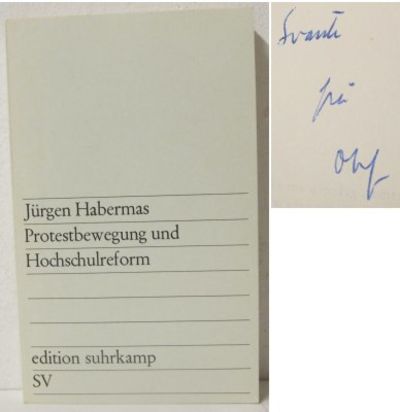 Jürgen Habermas
Protestbewegung und
Hochschulreform
edition suhrkamp
SV
Svante
från
Olof